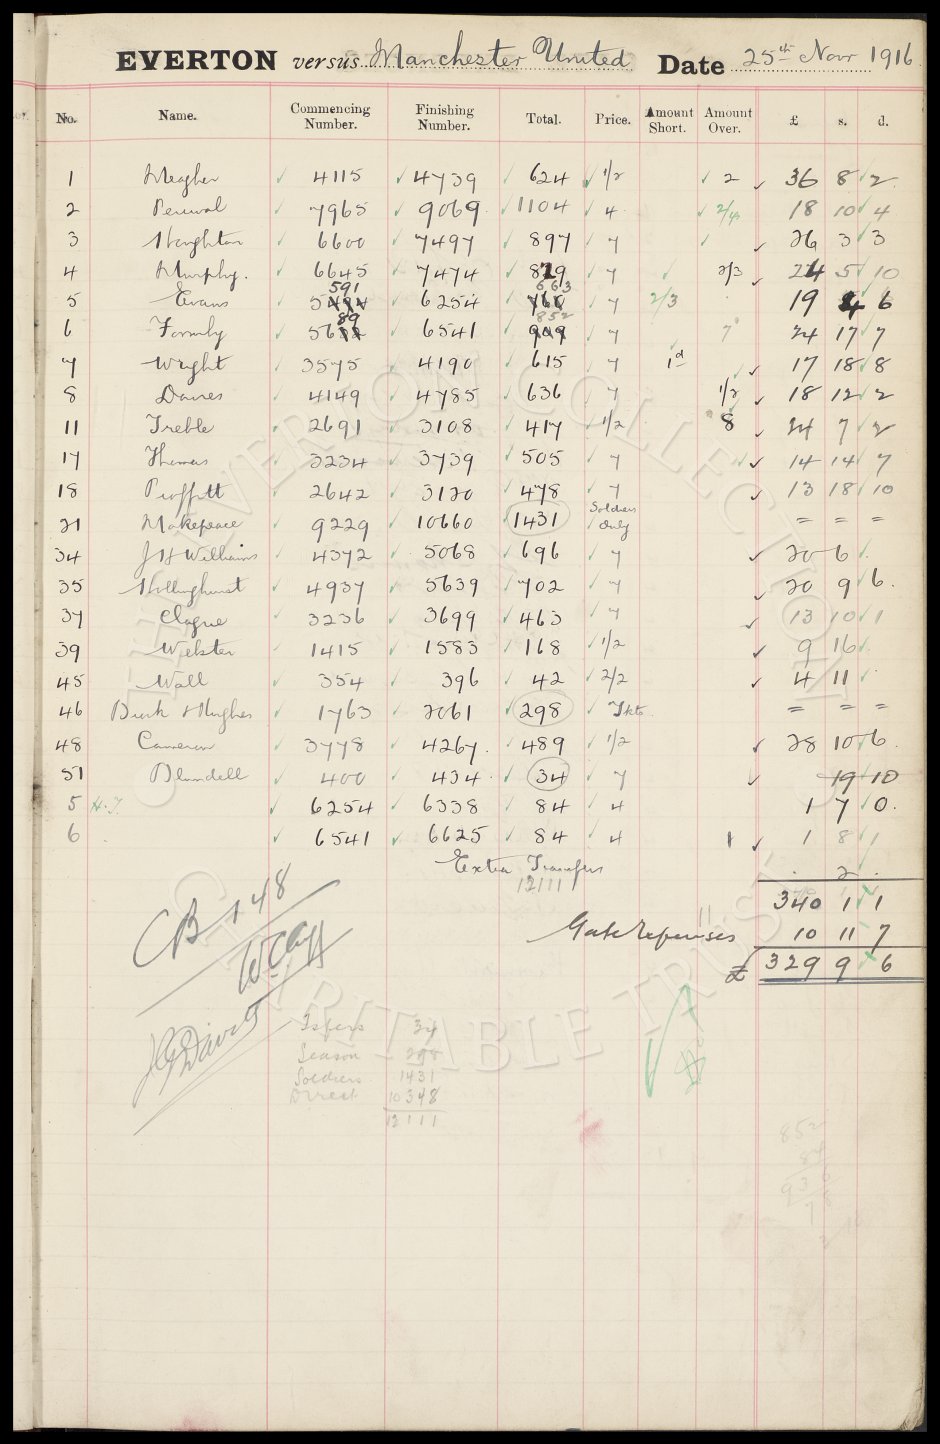 EVERTON versus Manchester United Date 25th Novr 1916
No. Name. Commencing Number. Finishing Number. Total. Price. Amount Short. Amount Over. £ s. d.
1 Meagher 4115 4739 624 1/2 2 36 8 2
2 Percival 7965 9069 1104 4 2/4 18 10 4
3 Houghton 6600 7497 897 7 26 3 3
4 Murphy. 6645 7474 829 7 2/3 24 5 10
591 663
5 Evans 6254 7 2/3 19 4 6
89 852
6 Formby 6541 7 7 24 17 7
7 Wright 3575 4190 615 7 1d 17 18 8
8 Davies 4149 4785 636 7 1/2 18 12 2
11 Treble 2691 3108 417 1/2 8 24 7 2
17 Thomas 3234 3739 505 7 14 14 7
18 Proffitt 2642 3120 478 7 13 18 10
21 Makepeace 9229 10660 1431 Soldiers Only = = =
34 J H Williams 4372 5068 696 7 20 6 .
35 Hollinghurst 4937 5639 702 7 20 9 6
37 Clague 3236 3699 463 7 13 10 1
39 Webster 1415 1583 168 1/2 9 16 .
45 Wall 354 396 42 2/2 4 11 .
46 Burk & Hughes 1763 2061 298 Tkts = = =
48 Cameron 3778 4267 489 1/2 28 10 6
51 Blundell 400 434 34 7 19 10
5 H.T. 6254 6338 84 4 1 7 0
6 6541 6625 84 4 1 1 8 1
Extra Transfers . 2 .
12111
340 1 1
Gate Expenses 10 11 7
£ 329 9 6
CB 148
Tsfers 34
Season 298
Soldiers 1431
Direct 10348
12111
852
84
936
EVERTON COLLECTION
CHARITABLE TRUST